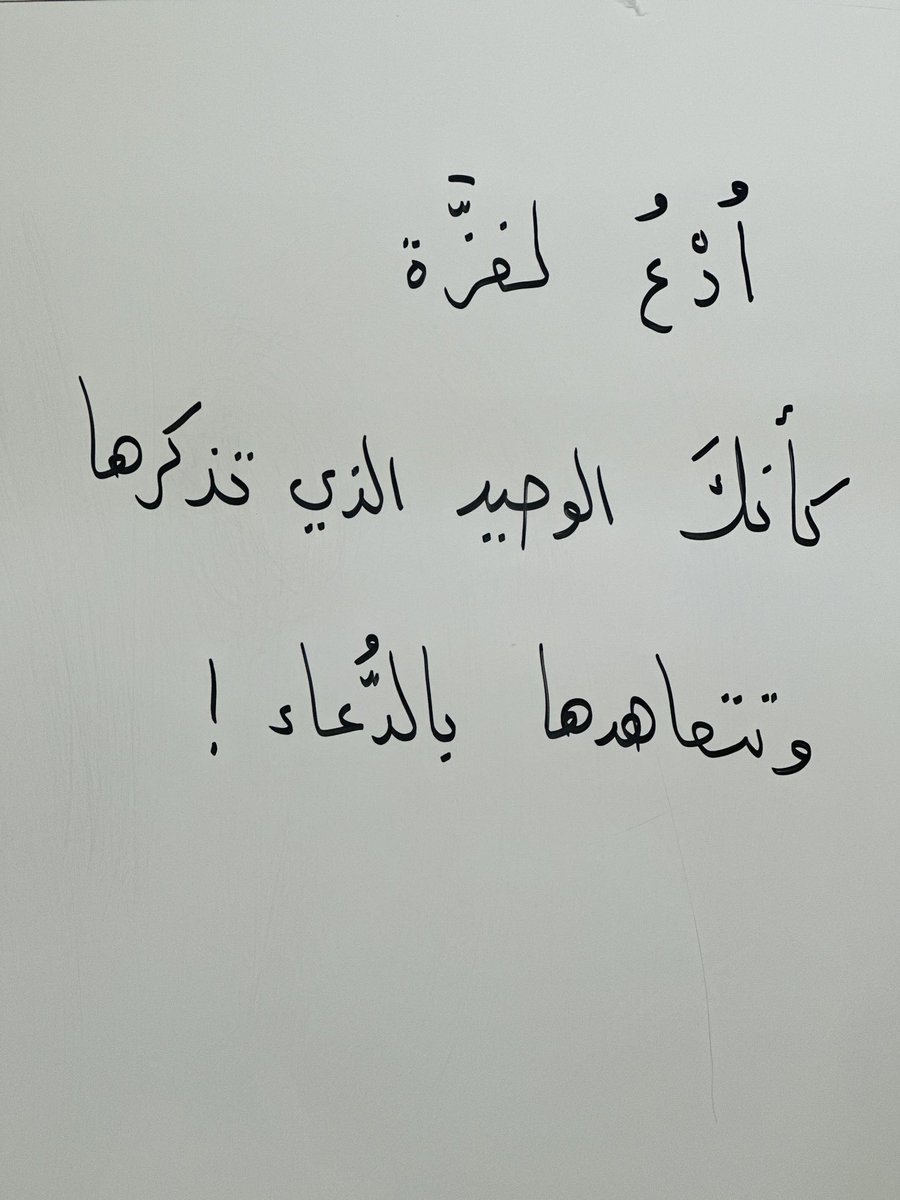 اُدْعُ لغزَّة
كأنكَ الوحيد الذي تذكرها
وتتعاهدها بالدُّعاء !